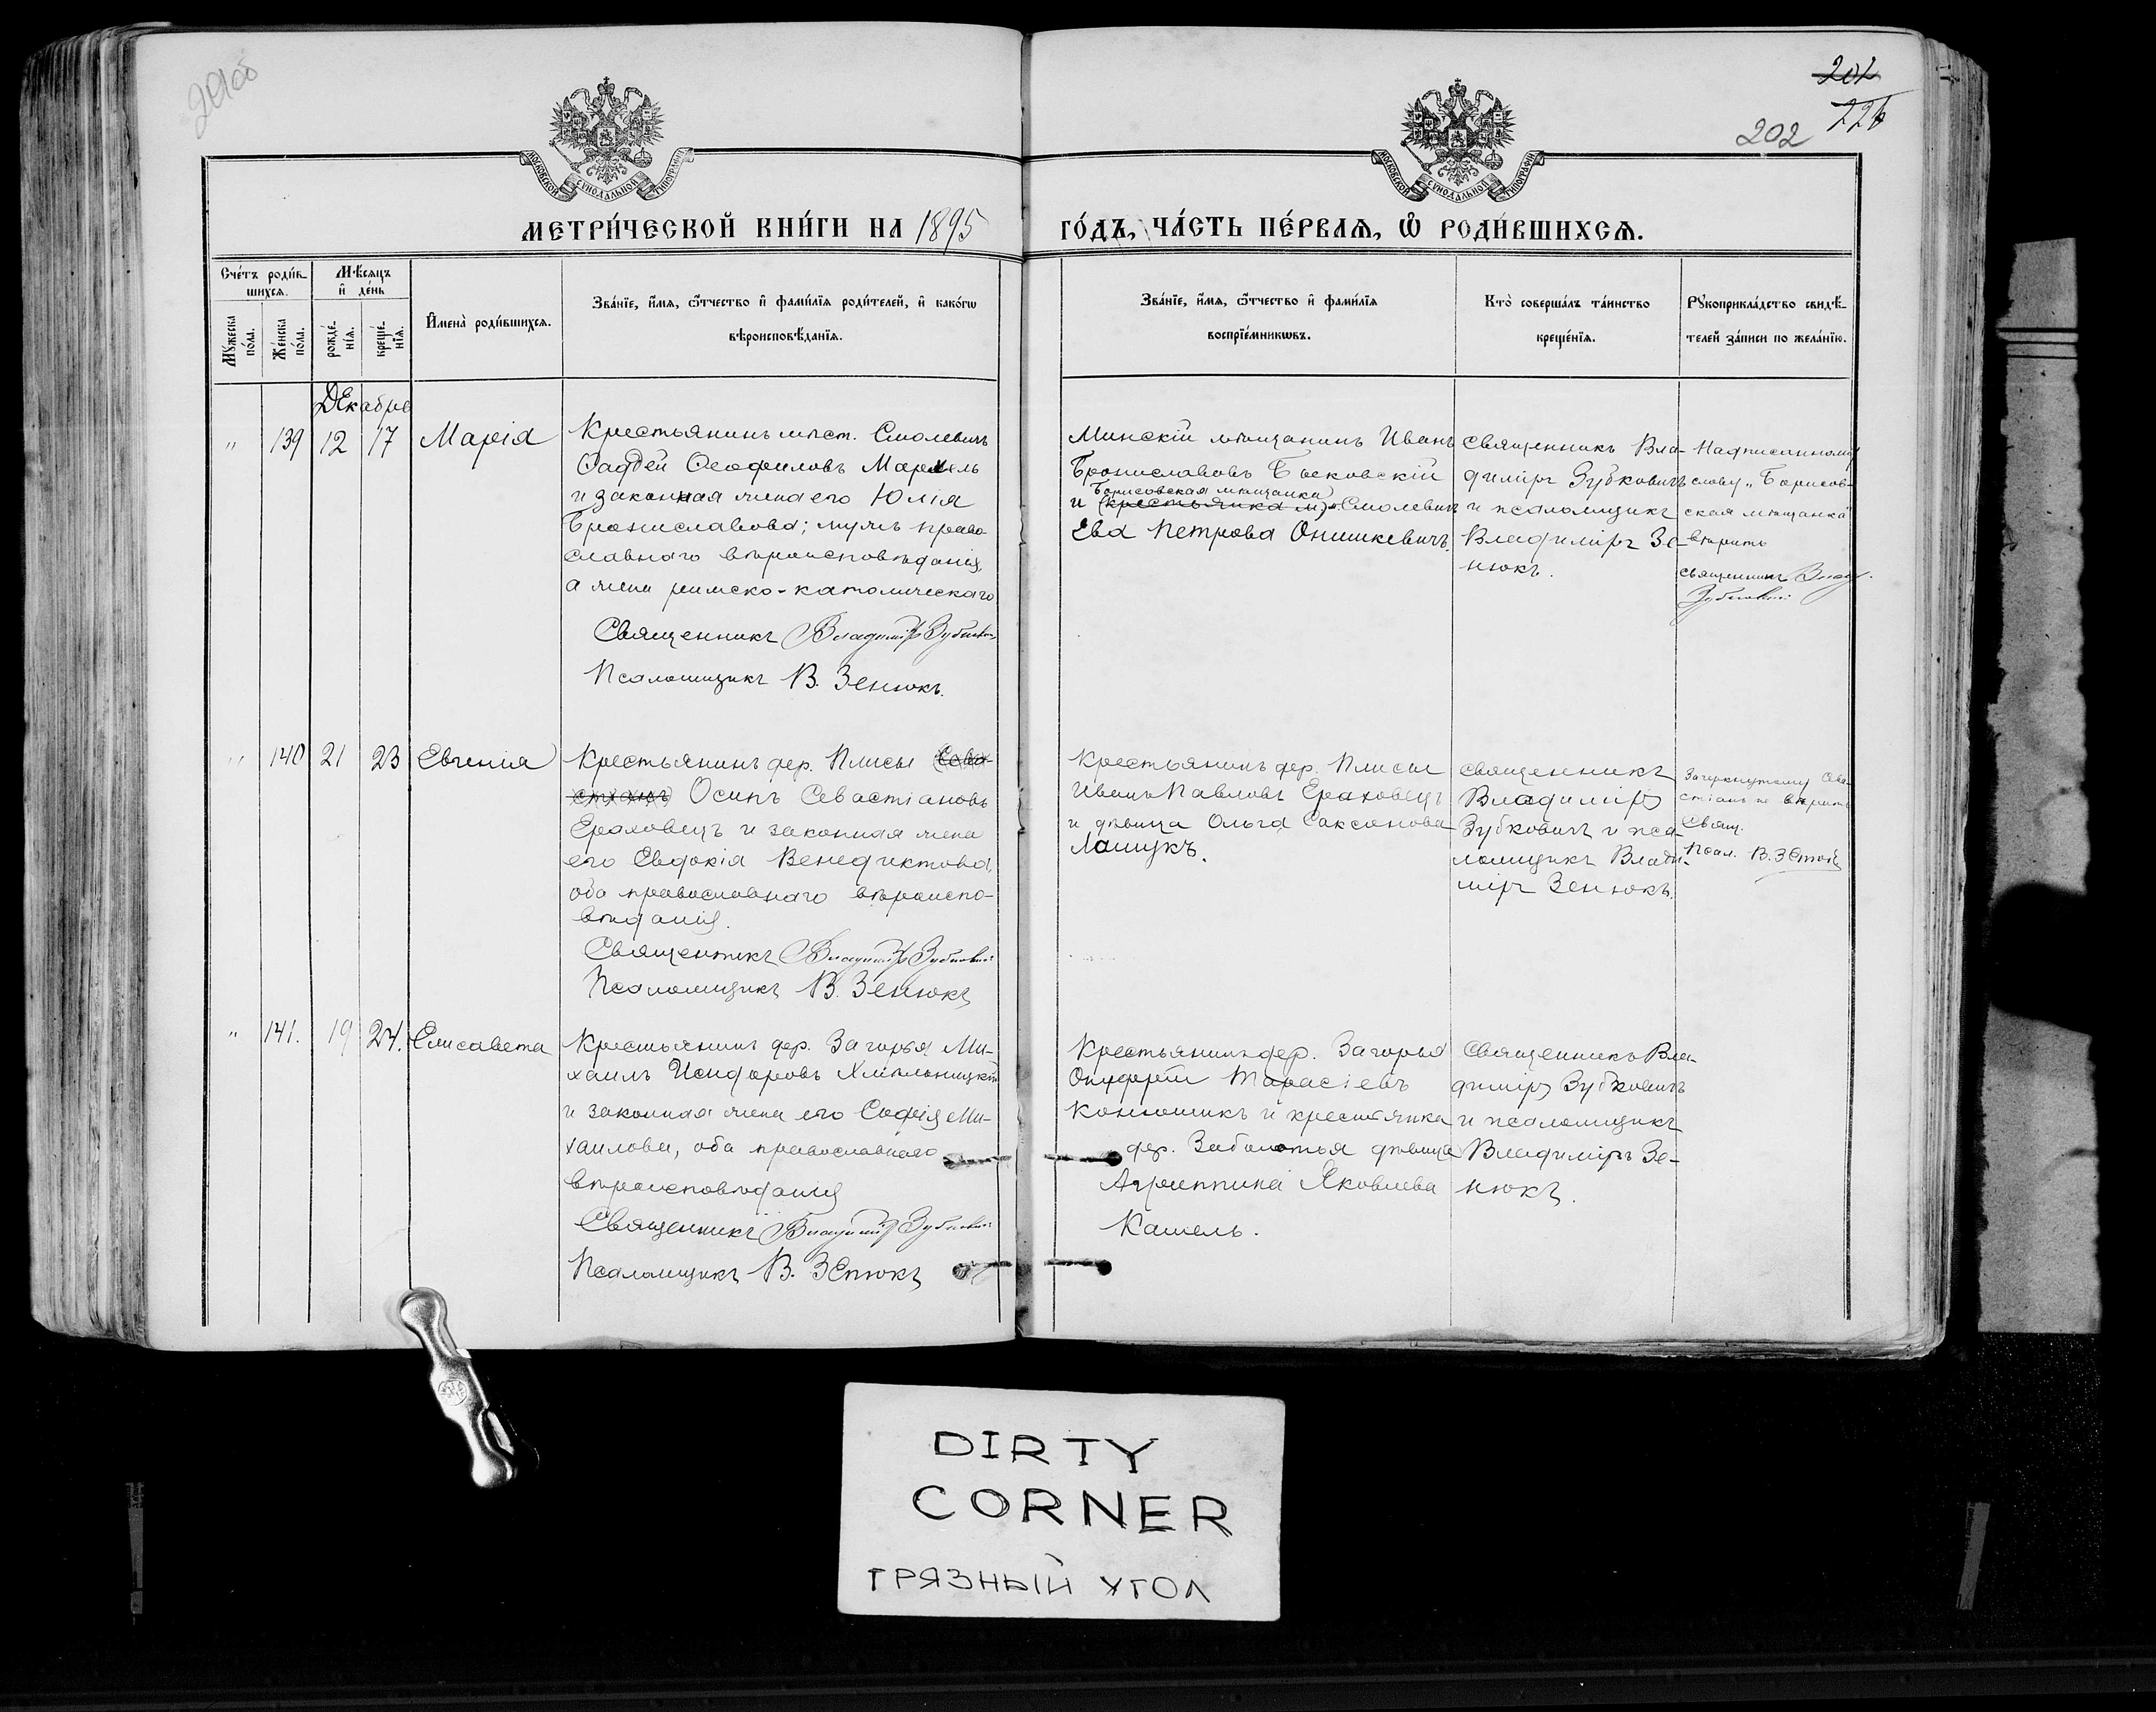 202
226
202
МОСКОВСКОЙ СѴНОДАЛЬНОЙ ТИПОГРАФІИ
МОСКОВСКОЙ СѴНОДАЛЬНОЙ ТИПОГРАФІИ
МЕТРИ́ЧЕСКОЙ КНИ́ГИ НА 1895 ГО́ДЪ, ЧА́СТЬ ПЕ́РВАѦ, Ѽ РОДИ́ВШИХСѦ.
Сче́тъ роди́в-
шихсѧ.
Мѣ́сѧцъ
и҆ де́нь
Мꙋ́жеска
по́ла.
Же́нска
по́ла.
рожде́-
нїѧ.
креще́-
нїѧ.
И҆мена̀ роди́вшихсѧ.
Зва́нїе, и҆́мѧ, ѻ҆́тчество и҆ фами́лїѧ роди́телей, и҆ како́гѡ
вѣроисповѣ́данїѧ.
Зва́нїе, и҆́мѧ, ѻ҆́тчество и҆ фами́лїѧ
воспрїе́мникѡвъ.
Кто̀ соверша́лъ та́инство
креще́нїѧ.
Рꙋкоприкла́дство свидѣ́-
телей за́писи по жела́нїю.
Декабрь
" 139 12 17 Марія
Крестьянинъ мѣст. Смолевичъ
Фаддей Ѳеофиловъ Маршель
и законная жена его Юлія
Брониславова; мужъ право-
славнаго вѣроисповѣданія,
а жена римско-католическаго
Священникъ Владиміръ Зубковичъ
Псаломщикъ В. Зенюкъ.
Минскій мѣщанинъ Иванъ
Брониславовъ Быковскій
Борисовская мѣщанка
и (крестьянка м.) Смолевичъ
Ева Петрова Онишкевичъ.
Священникъ Вла-
диміръ Зубковичъ
и псаломщикъ
Владиміръ Зе-
нюкъ.
Надписанному
слову "Борисов-
ская мѣщанка"
вѣрить
священникъ Влад.
Зубковичъ
" 140 21 23 Евгенія
Крестьянинъ дер. Плисы (Сева-
стіанъ) Осипъ Севастіановъ
Ераховецъ и законная жена
его Евдокія Венедиктова,
оба православнаго вѣроиспо-
вѣданія.
Священникъ Владиміръ Зубковичъ
Псаломщикъ В. Зенюкъ
Крестьянинъ дер. Плисы
Иванъ Павловъ Ераховецъ
и дѣвица Ольга Саксонова
Лащукъ.
Священникъ
Владиміръ
Зубковичъ и пса-
ломщикъ Влади-
міръ Зенюкъ.
Зачеркнутому Сева-
стіанъ не вѣрить
Свящ.
Псал. В. Зенюкъ
" 141. 19 24. Елисавета
Крестьянинъ дер. Загорья Ми-
хаилъ Исидоровъ Хмѣльницкій
и законная жена его Софія Ми-
хаилова, оба православнаго
вѣроисповѣданія
Священникъ Владиміръ Зубковичъ
Псаломщикъ В. Зенюкъ
Крестьянинъ дер. Загорья
Онуфрій Тарасіевъ
Конюшикъ и крестьянка
дер. Заболотья дѣвица
Агриппина Яковлева
Кашель.
Священникъ Вла-
диміръ Зубковичъ
и псаломщикъ
Владиміръ Зе-
нюкъ.
DIRTY
CORNER
ГРЯЗНЫЙ УГОЛ